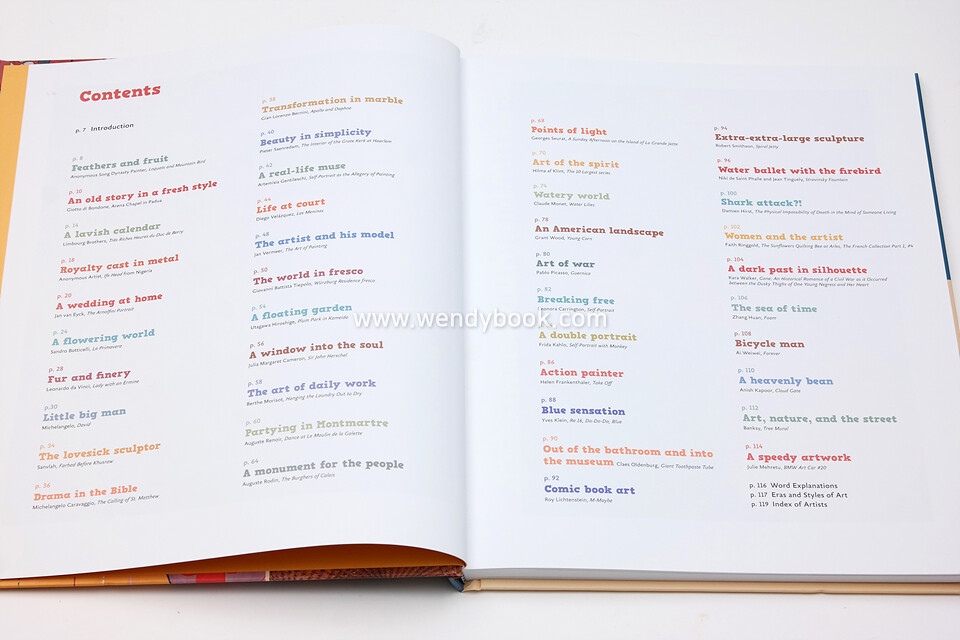 Contents
p. 7 Introduction
p. 8
Feathers and fruit
Anonymous Song Dynasty Painter, Loquats and Mountain Bird
p. 10
An old story in a fresh style
Giotto di Bondone, Arena Chapel in Padua
p. 14
A lavish calendar
Limbourg Brothers, Très Riches Heures du Duc de Berry
p. 18
Royalty cast in metal
Anonymous Artist, Ife Head from Nigeria
p. 20
A wedding at home
Jan van Eyck, The Arnolfini Portrait
p. 24
A flowering world
Sandro Botticelli, La Primavera
p. 28
Fur and finery
Leonardo da Vinci, Lady with an Ermine
p. 30
Little big man
Michelangelo, David
p. 34
The lovesick sculptor
Sanvlah, Farhad Before Khusraw
p. 36
Drama in the Bible
Michelangelo Caravaggio, The Calling of St. Matthew
p. 38
Transformation in marble
Gian Lorenzo Bernini, Apollo and Daphne
p. 40
Beauty in simplicity
Pieter Saenredam, The Interior of the Grote Kerk at Haarlem
p. 42
A real-life muse
Artemisia Gentileschi, Self-Portrait as the Allegory of Painting
p. 44
Life at court
Diego Velázquez, Las Meninas
p. 48
The artist and his model
Jan Vermeer, The Art of Painting
p. 50
The world in fresco
Giovanni Battista Tiepolo, Würzburg Residence fresco
p. 54
A floating garden
Utagawa Hiroshige, Plum Park in Kameido
p. 56
A window into the soul
Julia Margaret Cameron, Sir John Herschel
p. 58
The art of daily work
Berthe Morisot, Hanging the Laundry Out to Dry
p. 60
Partying in Montmartre
Auguste Renoir, Dance at Le Moulin de la Galette
p. 64
A monument for the people
Auguste Rodin, The Burghers of Calais
p. 68
Points of light
Georges Seurat, A Sunday Afternoon on the Island of La Grande Jatte
p. 70
Art of the spirit
Hilma af Klint, The 10 Largest series
p. 74
Watery world
Claude Monet, Water Lilies
p. 78
An American landscape
Grant Wood, Young Corn
p. 80
Art of war
Pablo Picasso, Guernica
p. 82
Breaking free
Leonora Carrington, Self-Portrait
A double portrait
Frida Kahlo, Self-Portrait with Monkey
p. 86
Action painter
Helen Frankenthaler, Take Off
p. 88
Blue sensation
Yves Klein, Re 16, Do-Do-Do, Blue
p. 90
Out of the bathroom and into
the museum Claes Oldenburg, Giant Toothpaste Tube
p. 92
Comic book art
Roy Lichtenstein, M-Maybe
p. 94
Extra-extra-large sculpture
Robert Smithson, Spiral Jetty
p. 96
Water ballet with the firebird
Niki de Saint Phalle and Jean Tinguely, Stravinsky Fountain
p. 100
Shark attack?!
Damien Hirst, The Physical Impossibility of Death in the Mind of Someone Living
p. 102
Women and the artist
Faith Ringgold, The Sunflowers Quilting Bee at Arles, The French Collection Part I, #4
p. 104
A dark past in silhouette
Kara Walker, Gone: An Historical Romance of a Civil War as it Occurred
between the Dusky Thighs of One Young Negress and Her Heart
p. 106
The sea of time
Zhang Huan, Foam
p. 108
Bicycle man
Ai Weiwei, Forever
p. 110
A heavenly bean
Anish Kapoor, Cloud Gate
p. 112
Art, nature, and the street
Banksy, Tree Mural
p. 114
A speedy artwork
Julie Mehretu, BMW Art Car #20
p. 116 Word Explanations
p. 117 Eras and Styles of Art
p. 119 Index of Artists
www.wendybook.com